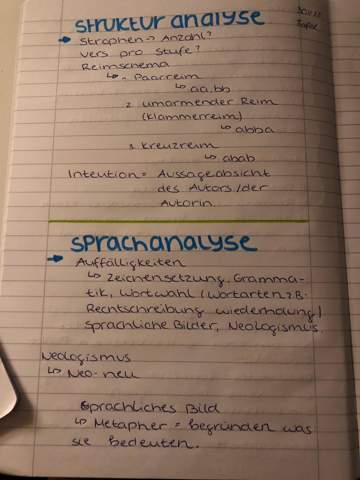 Strukturanalyse
→ Strophen → Anzahl?
vers pro Stufe?
Reimschema
↳ 1. Paarreim
↳ aa, bb
2. umarmender Reim
(Klammerreim)
↳ abba
3. Kreuzreim
↳ abab
Intention = Aussageabsicht
des Autors / der
Autorin.
Sprachanalyse
→ Auffälligkeiten
↳ Zeichensetzung, Gramma-
tik, Wortwahl (Wortarten z.B.
Rechtschreibung wiederholung)
Sprachliche Bilder, Neologismus.
Neologismus
↳ Neo - neu
Sprachliches Bild
↳ Metapher = begründen was
sie bedeuten.